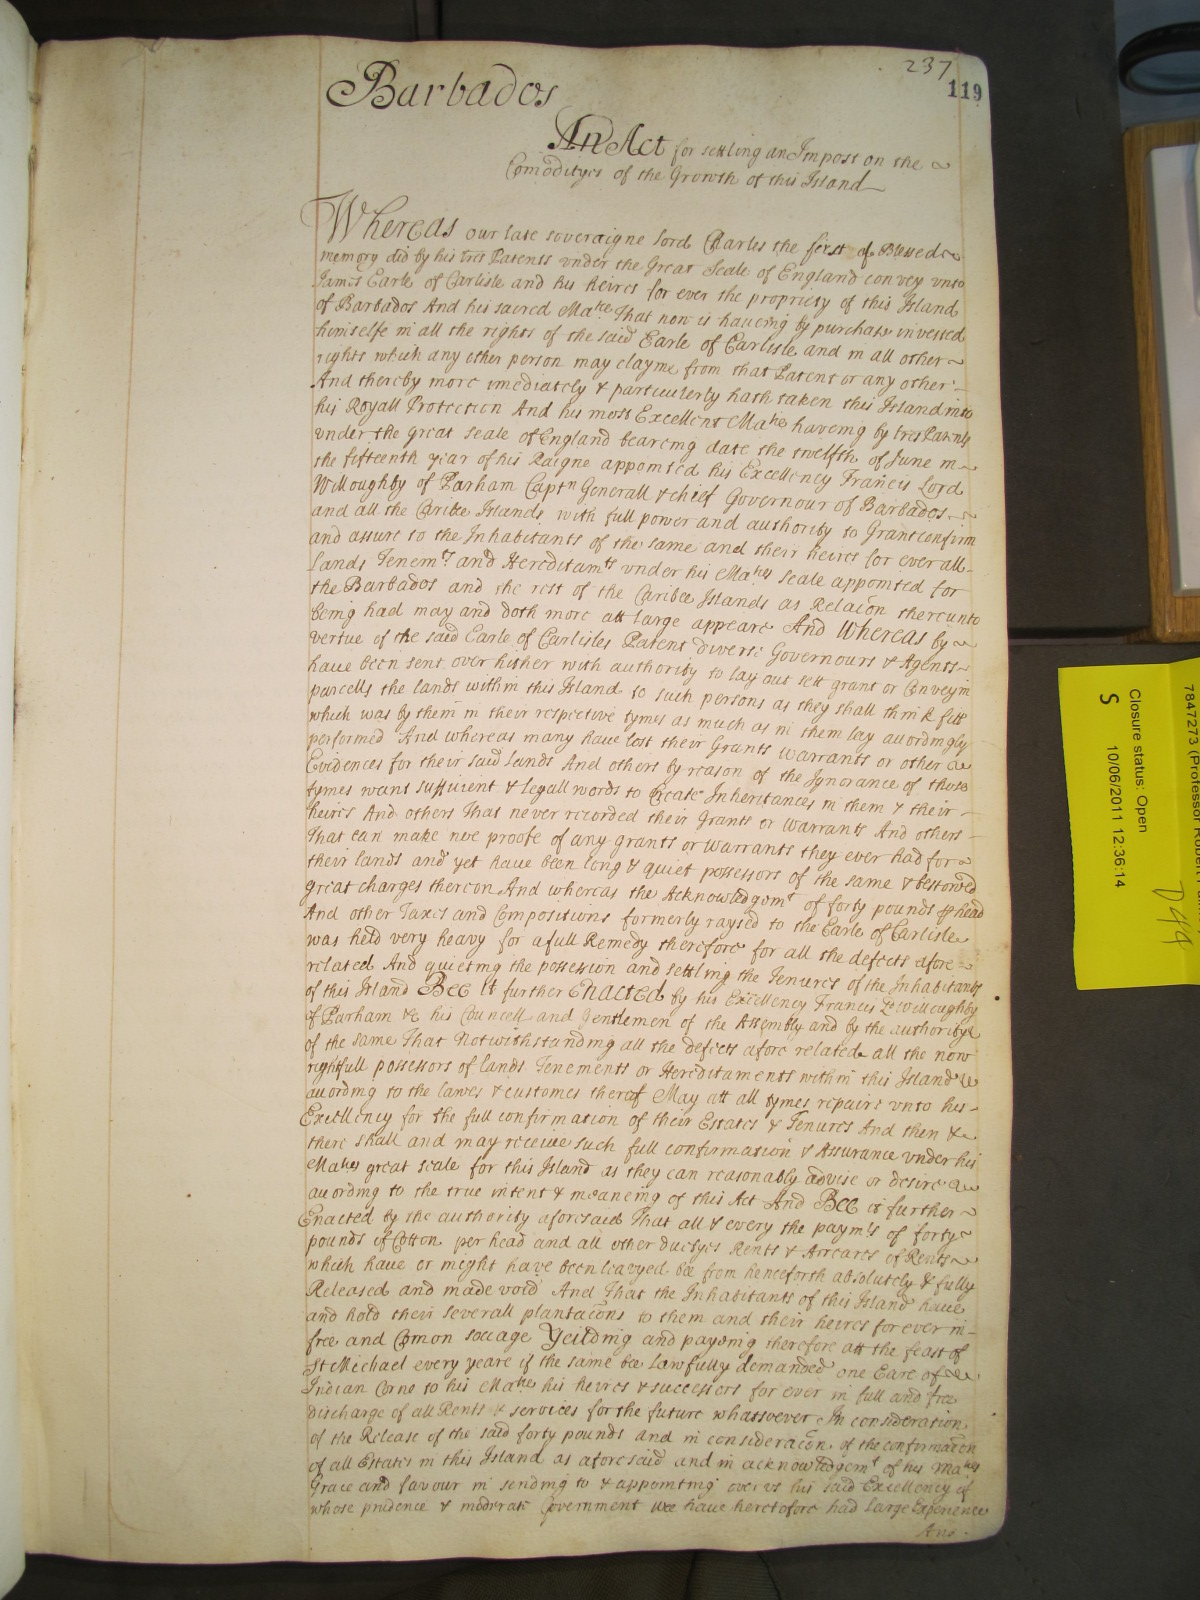 237
119
Barbados
An Act for settling an Impost on the
Comōdityes of the Growth of this Island
Whereas our late soveraigne lord Charles the first of Blessed
memory did by his lres Patents vnder the Great Seale of England convey vnto
James Earle of Carlisle and his heires for ever the propriety of this Island
of Barbados And his sacred Matie That now is haveing by purchase invested
himselfe in all the rights of the said Earle of Carlisle and in all other
rights which any other person may clayme from that Patent or any other
And thereby more imediately & particulerly hath taken this Island into
his Royall Protection And his most Excellent Matie haveing by lres Patents
vnder the great seale of England bearing date the twelfth of June in
the fifteenth year of his Raigne appointed his Excellency Francis Lord
Willoughby of Parham Captn Generall & chief Governour of Barbados
and all the Caribee Islands with full power and authority to Grant confirm
and assure to the Inhabitants of the same and their heires for ever all
lands Tenemts and Hereditamts vnder his Maties seale appointed for
the Barbados and the rest of the Caribee Islands as Relacōn thereunto
being had may and doth more att large appeare And Whereas by
vertue of the said Earle of Carlisles Patent divers Governours & Agents
have been sent over hither with authority to lay out sett grant or Convey in
parcells the lands within this Island to such persons as they shall think fitt
which was by them in their respective tymes as much as in them lay accordingly
performed And whereas many have lost their Grants Warrants or other
Evidences for their said lands And others by reason of the Ignorance of those
tymes want sufficient & legall words to Create Inheritances in them & their
heires And others That never recorded their Grants or Warrants And others
That can make noe proofe of any grants or Warrants they ever had for
their lands and yet have been long & quiet possessors of the same & bestowed
great charges thereon And whereas the Acknowledgemt of forty pounds ꝑ head
And other Taxes and Compositions formerly raysed to the Earle of Carlisle
was held very heavy for a full Remedy therefore for all the defects afore
related And quieting the possession and settling the Tenures of the Inhabitants
of this Island Bee It further Enacted by his Excellency Francis Ld Willoughby
of Parham &c his Councell and Gentlemen of the Assembly and by the authority
of the same That Notwithstanding all the defects afore related all the now
rightfull possessors of lands Tenements or Hereditaments within this Island
according to the lawes & customes thereof May att all tymes repaire vnto his
Excellency for the full confirmation of their Estates & Tenures And then &
there shall and may receive such full confirmation & Assurance vnder his
Maties great seale for this Island as they can reasonably advise or desire
according to the true intent & meaneing of this Act And Bee it further
Enacted by the authority aforesaid That all & every the paymts of forty
pounds of Cotton per head and all other dutyes Rents & Arreares of Rents
which have or might have been leavyed bee from henceforth absolutely & fully
Released and made void And That the Inhabitants of this Island have
and hold their severall plantacōns to them and their heires for ever in
free and Comon soccage Yeilding and paying therefore att the feast of
St Michael every yeare if the same bee lawfully demanded one Eare of
Indian Corne to his Matie his heires & successers for ever in full and free
discharge of all Rents & services for the future whatsoever In consideration
of the Release of the said forty pounds and in consideracōn of the confirmacōn
of all Estates in this Island as aforesaid and in acknowledgemt of his Maties
Grace and favour in sending to & appointing over vs his said Excellency of
whose prudence & moderate Government wee have heretofore had large Experience
And
7847273 (Professor Robert
Closure status: Open
S
10/06/2011 12:36:14